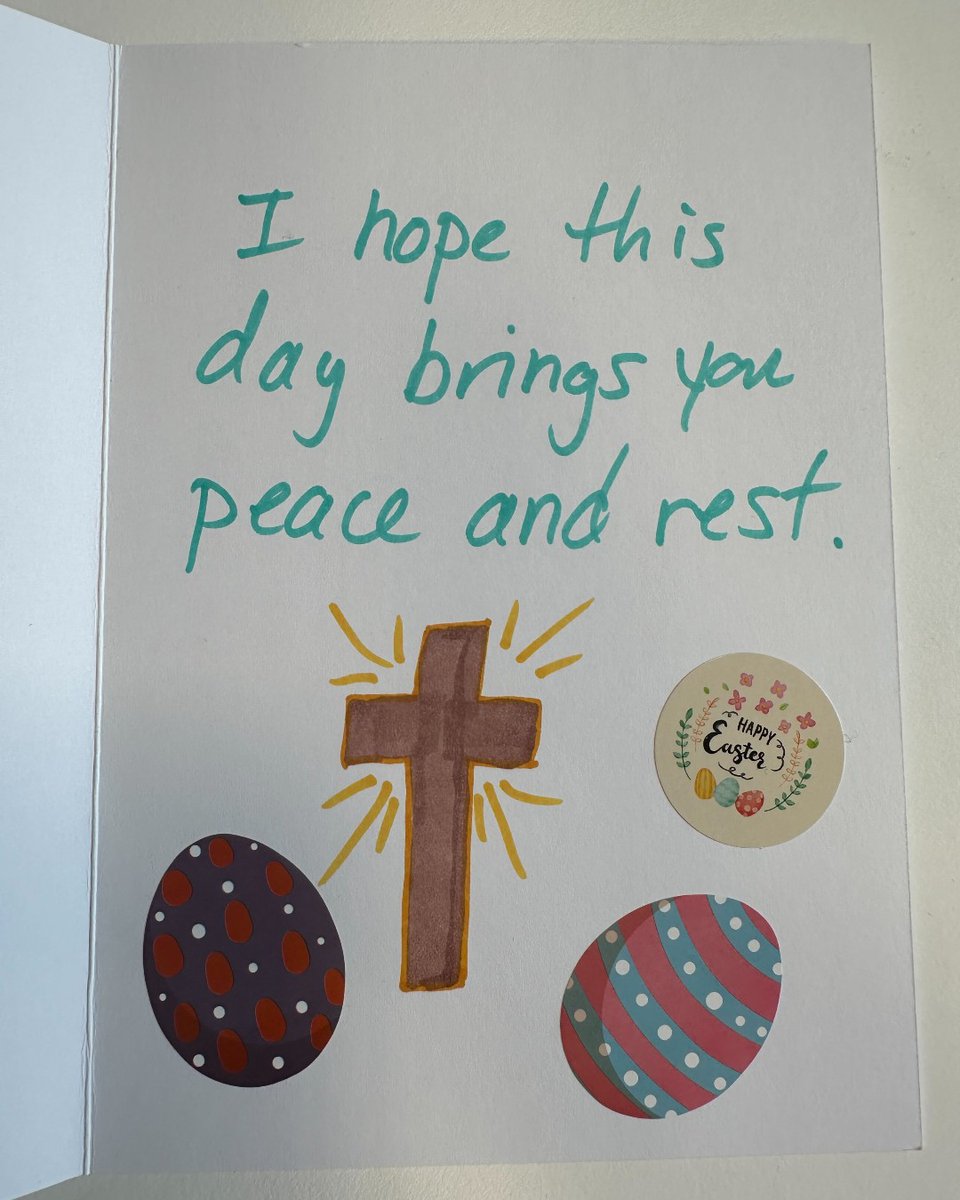 I hope this
day brings you
peace and rest.
HAPPY
Easter